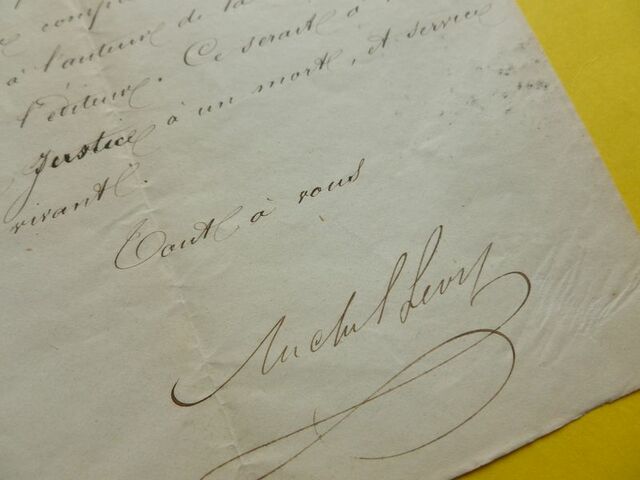 compl
à l'auteur de la
l'éditeur. Ce serait à
Justice à un mort, et service
vivant.
Tout à vous
Michel Levy